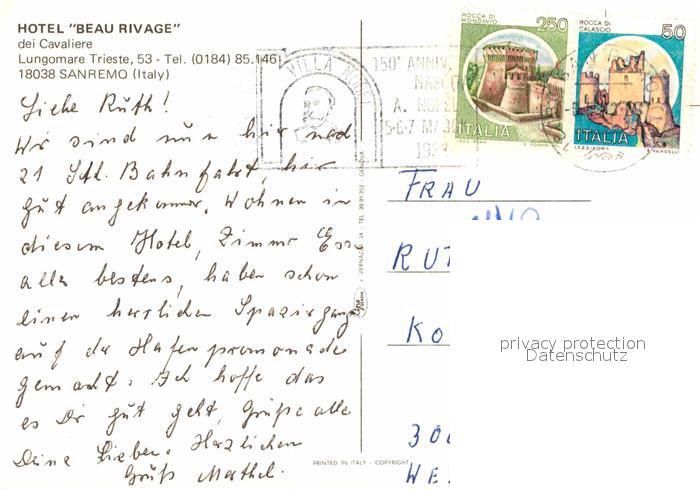 HOTEL "BEAU RIVAGE"
dei Cavaliere
Lungomare Trieste, 53 - Tel. (0184) 85.146
18038 SANREMO (Italy)
Liebe Ruth!
Wir sind nun hier nach
21 Std. Bahnfahrt, hier
gut angekommen. Wohnen in
diesem Hotel, Zimmer Essen
alles bestens, haben schon
einen herrlichen Spaziergang
auf der Hafenpromenade
gemacht. Ich hoffe das
es Dir gut geht, Grüße alle
Deine Lieben. Herzlichen
Gruß
ROCCA DI MONDAVIO
250
ITALIA
ROCCA DI CALASCIO
50
ITALIA
I.P.Z.S. ROMA
E. VANGELLI
VILLA NOBEL
150° ANNIV
NASC
A. NOBEL
5-6-7 M
FRAU
RUT
KO
300
WE
privacy protection
Datenschutz
PRINTED IN ITALY - COPYRIGHT